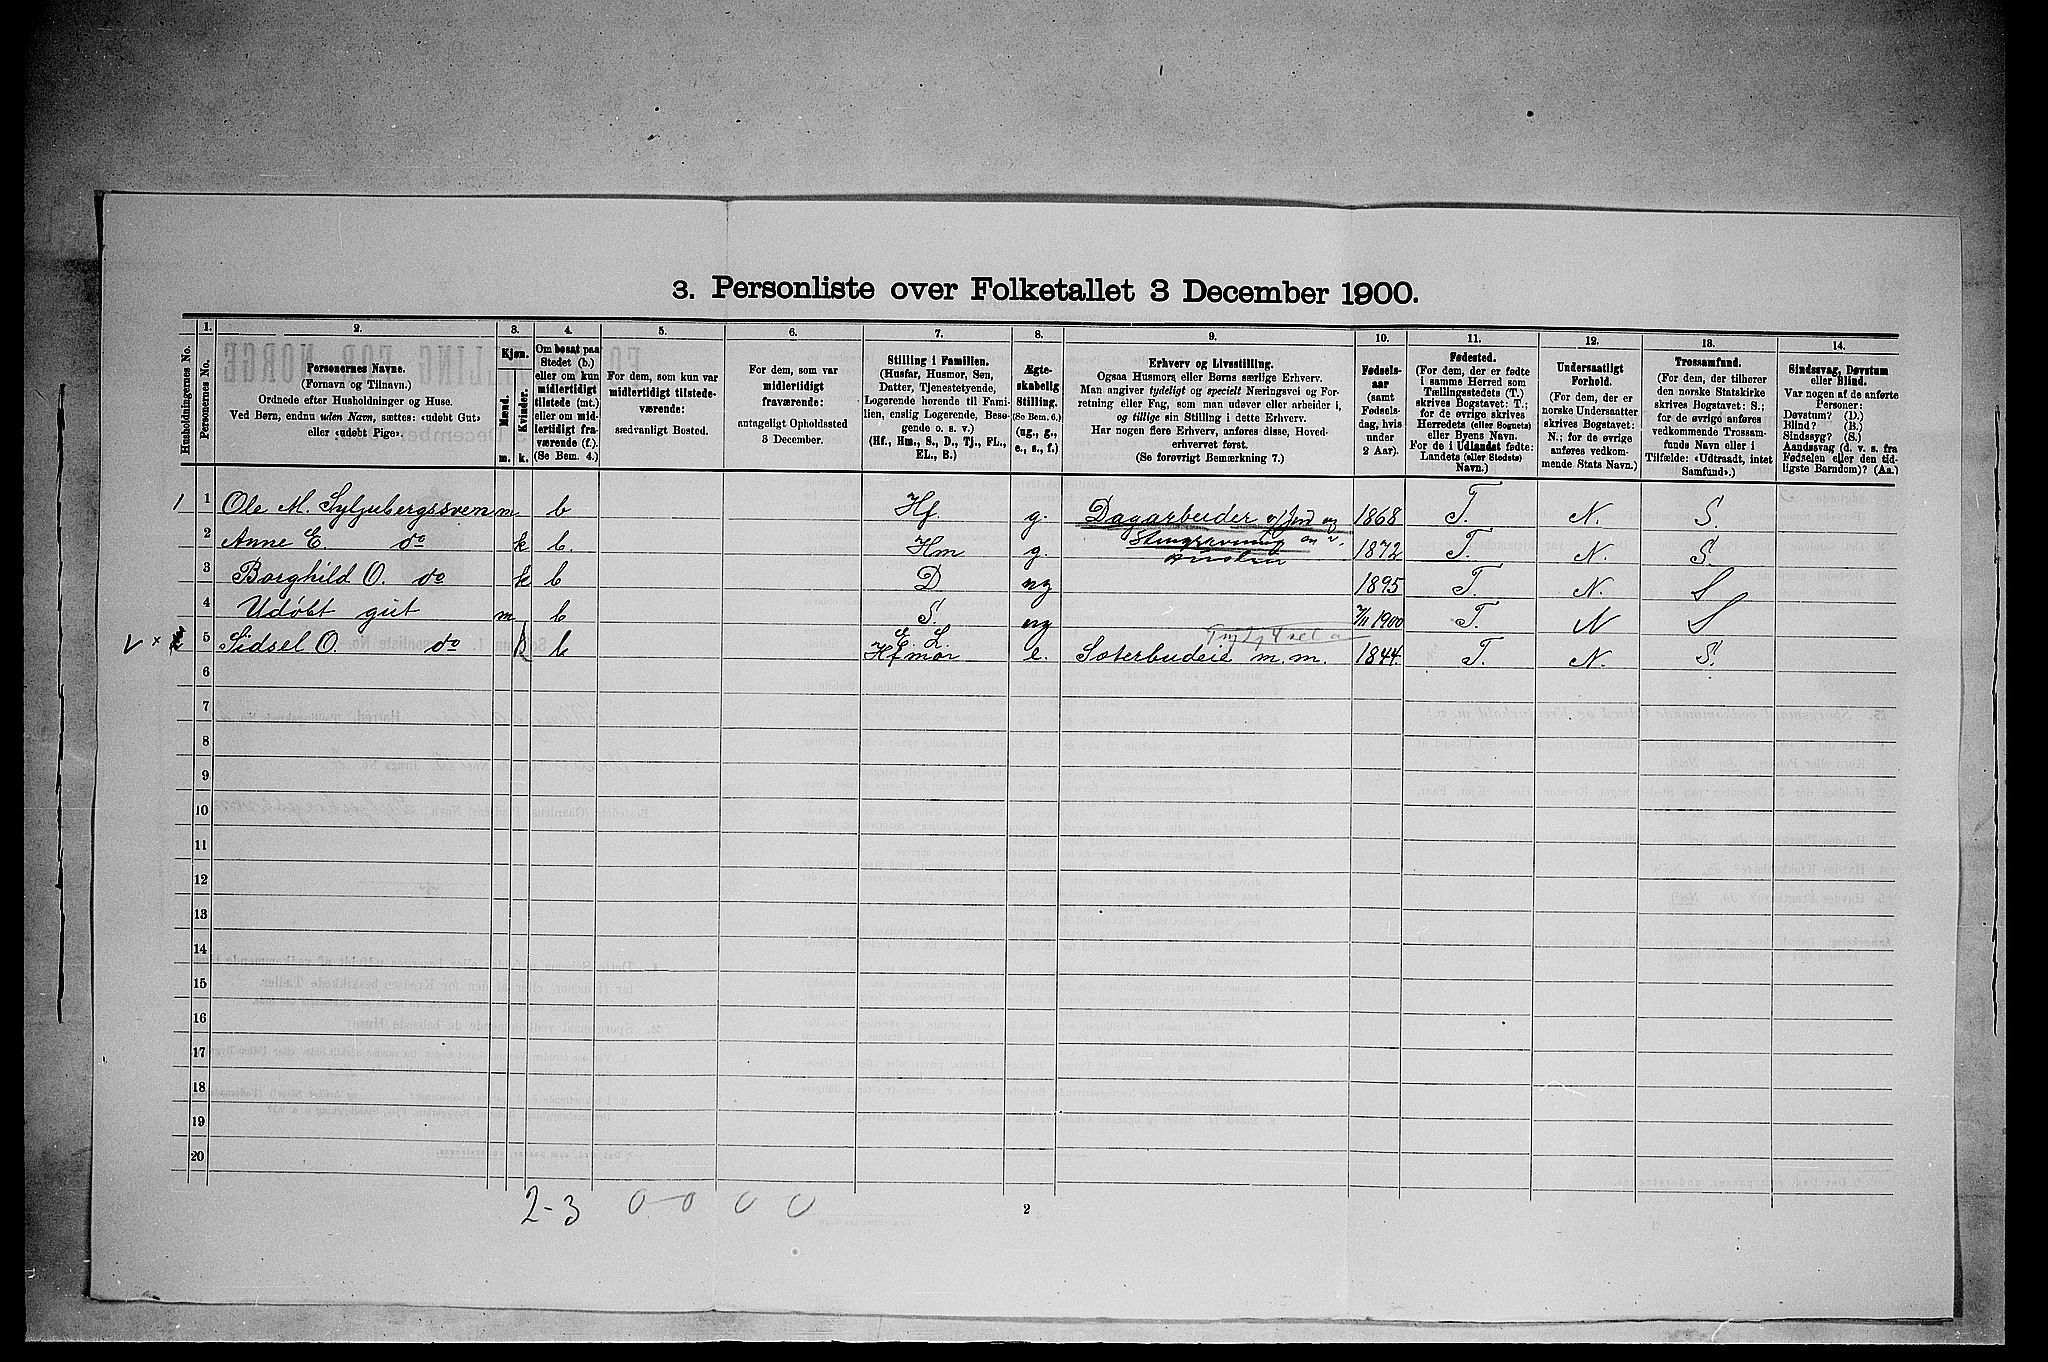 3. Personliste over Folketallet 3 December 1900.
Husholdningernes No.
1.
Personernes No.
2.
Personernes Navne.
(Fornavn og Tilnavn.)
Ordnede efter Husholdninger og Huse.
Ved Børn, endnu uden Navn, sættes: «udøbt Gut»
eller «udøbt Pige».
3.
Kjøn.
Mænd.
Kvinder.
m. k.
4.
Om bosat paa
Stedet (b.)
eller om kun
midlertidigt
tilstede (mt.)
eller om mid-
lertidigt fra-
værende (f.).
(Se Bem. 4.)
5.
For dem, som kun var
midlertidigt tilstede-
værende:
sædvanligt Bosted.
6.
For dem, som var
midlertidigt
fraværende:
antageligt Opholdssted
3 December.
7.
Stilling i Familien.
(Husfar, Husmor, Søn,
Datter, Tjenestetyende,
Logerende hørende til Fami-
lien, enslig Logerende, Besø-
gende o. s. v.)
(Hf., Hm., S., D., Tj., FL.,
EL., B.)
8.
Ægte-
skabelig
Stilling.
(Se Bem. 6.)
(ug., g.,
e., s., f.)
9.
Erhverv og Livsstilling.
Ogsaa Husmors eller Børns særlige Erhverv.
Man angiver tydeligt og specielt Næringsvei og For-
retning eller Fag, som man udøver eller arbeider i,
og tillige sin Stilling i dette Erhverv.
Har nogen flere Erhverv, anføres disse, Hoved-
erhvervet først.
(Se forøvrigt Bemærkning 7.)
10.
Fødsels-
aar
(samt
Fødsels-
dag, hvis
under
2 Aar).
11.
Fødested.
(For dem, der er fødte
i samme Herred som
Tællingsstedets (T.)
skrives Bogstavet: T.;
for de øvrige skrives
Herredets (eller Sognets)
eller Byens Navn.
For de i Udlandet fødte:
Landets (eller Stedets)
Navn.)
12.
Undersaatligt
Forhold.
(For dem, der er
norske Undersaatter
skrives Bogstavet:
N.; for de øvrige
anføres vedkom-
mende Stats Navn.)
13.
Trossamfund.
(For dem, der tilhører
den norske Statskirke
skrives Bogstavet: S.;
for de øvrige anføres
vedkommende Trossam-
funds Navn eller i
Tilfælde: «Udtraadt, intet
Samfund».)
14.
Sindssvag, Døvstum
eller Blind.
Var nogen af de anførte
Personer:
Døvstum? (D.)
Blind? (B.)
Sindssyg? (S.)
Aandssvag (d. v. s. fra
Fødselen eller den tid-
ligste Barndom)? (Aa.)
1 1 Ole M. Syljubergsveen m b Hf g. Dagarbeider 1868 T. N. S.
2 Anne E. do k b. Hm g. 1872 T. N. S.
3 Borghild O. do k b D ug 1895 T. N. S
4 Udøbt gut m b S. ug 1900 T. N S
V × 2 5 Sidsel O. do k b E. L. Hfmor e. Sæterbudeie m.m. 1844. T. N. S.
6
7
8
9
10
11
12
13
14
15
16
17
18
19
20
2-3 0-0 0 0
2